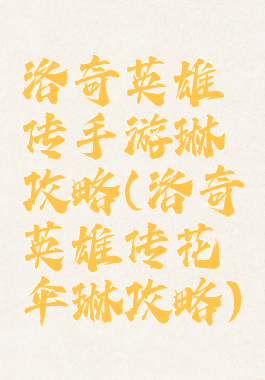 洛奇英雄
传手游琳
攻略(洛奇
英雄传花
伞琳攻略)